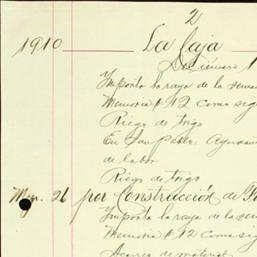 2
1910 La Caja
Importa la raya de la sema
Memoria # 12 como sig
Riego de trigo
En San Pedro. Ayudan
de labor
Riego de trigo
Mzo. 26 por Construcción de
Importa la raya de la se
Memoria # 12 como
Acarreo de material